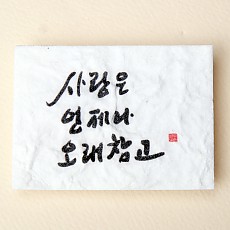 사랑은
언제나
오래참고